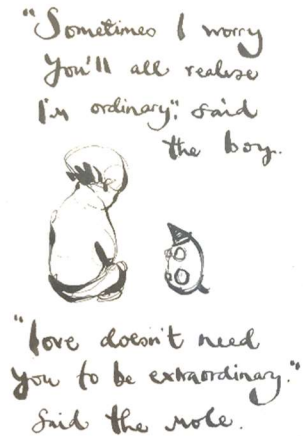 "Sometimes I worry
you'll all realise
I'm ordinary," said
the boy.
"Love doesn't need
you to be extraordinary."
said the mole.